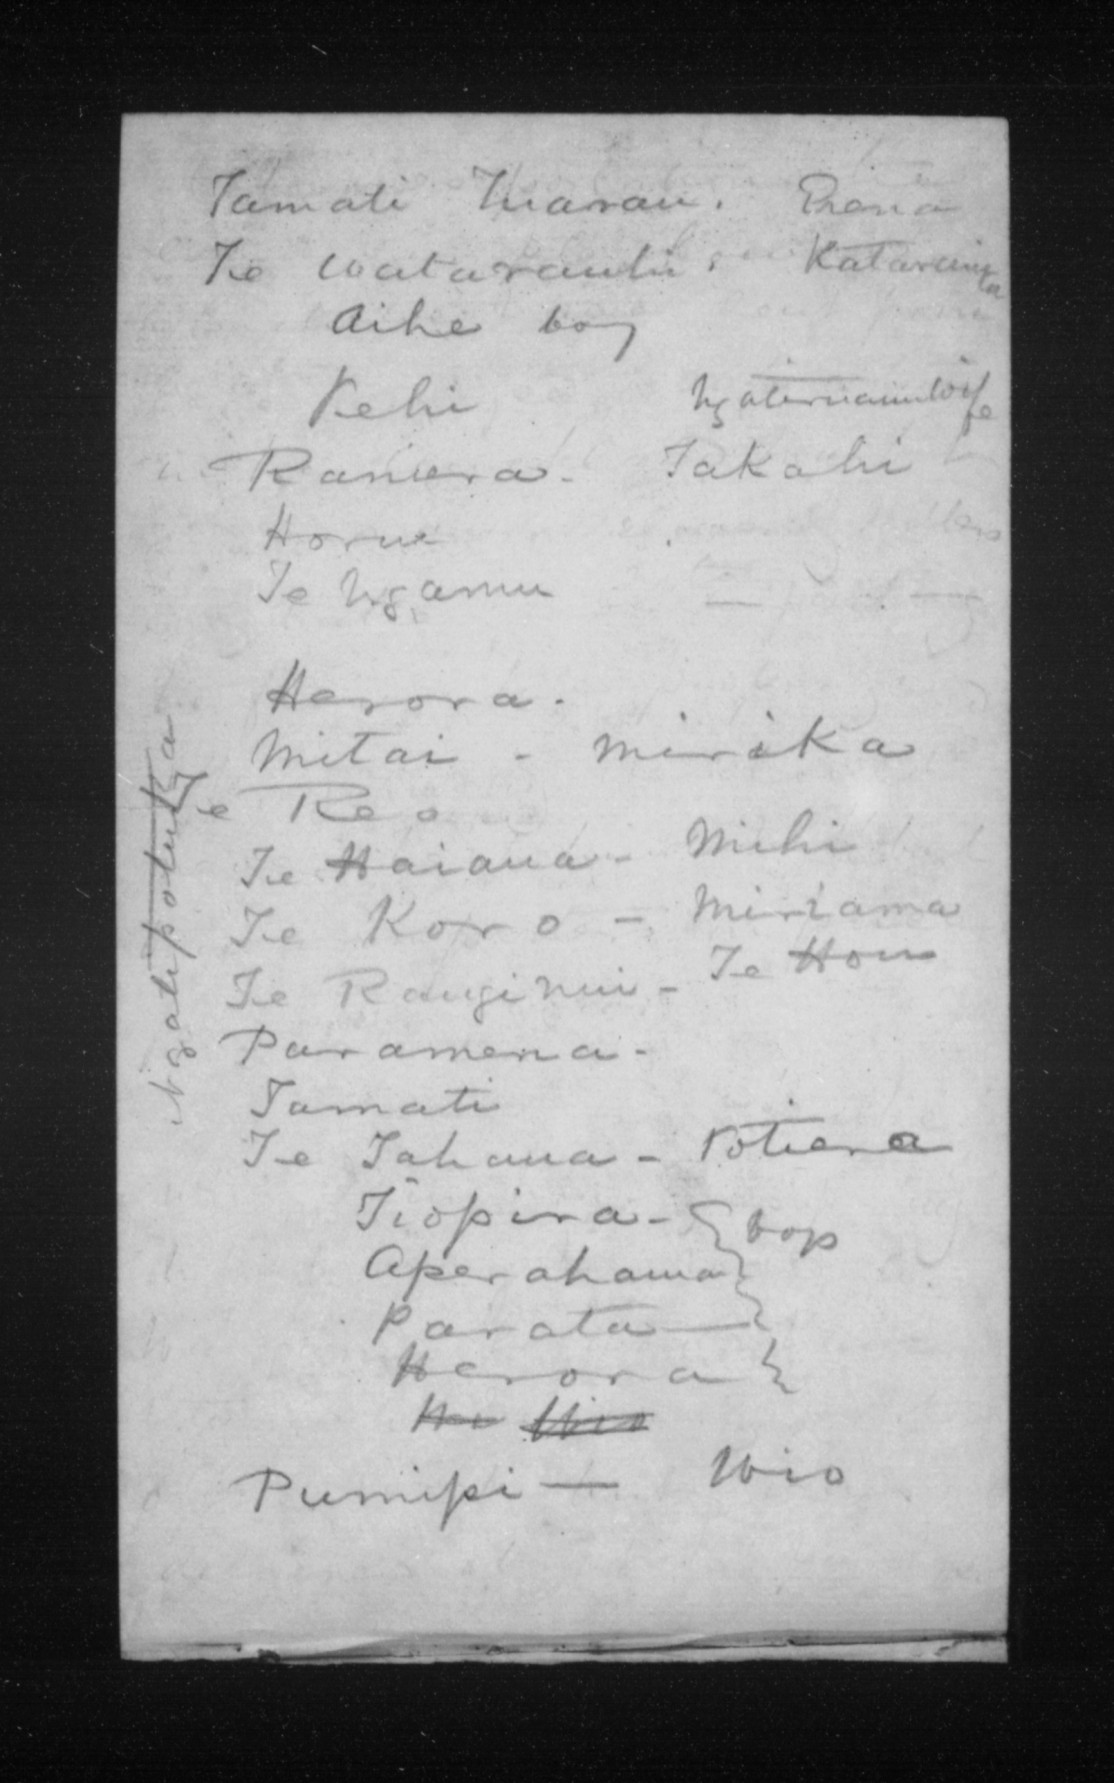 Tamati Tuarau. Piena
Te Watarauhi. Katarina
Aihe boy
Kehi wife
Raniera - Takahi
Horue
Te Ngamu
Herora.
Mitai - Mirika
Te Reo
Te Haiaua - Mihi
Te Koro - Miriama
Te Rangi nui - Te Hou
Paramena -
Tamati
Te Tahaua - Potiera
Tiopira -
Aperahama
Parata
Herora
Pumipi — Wio
Ngatipotuka